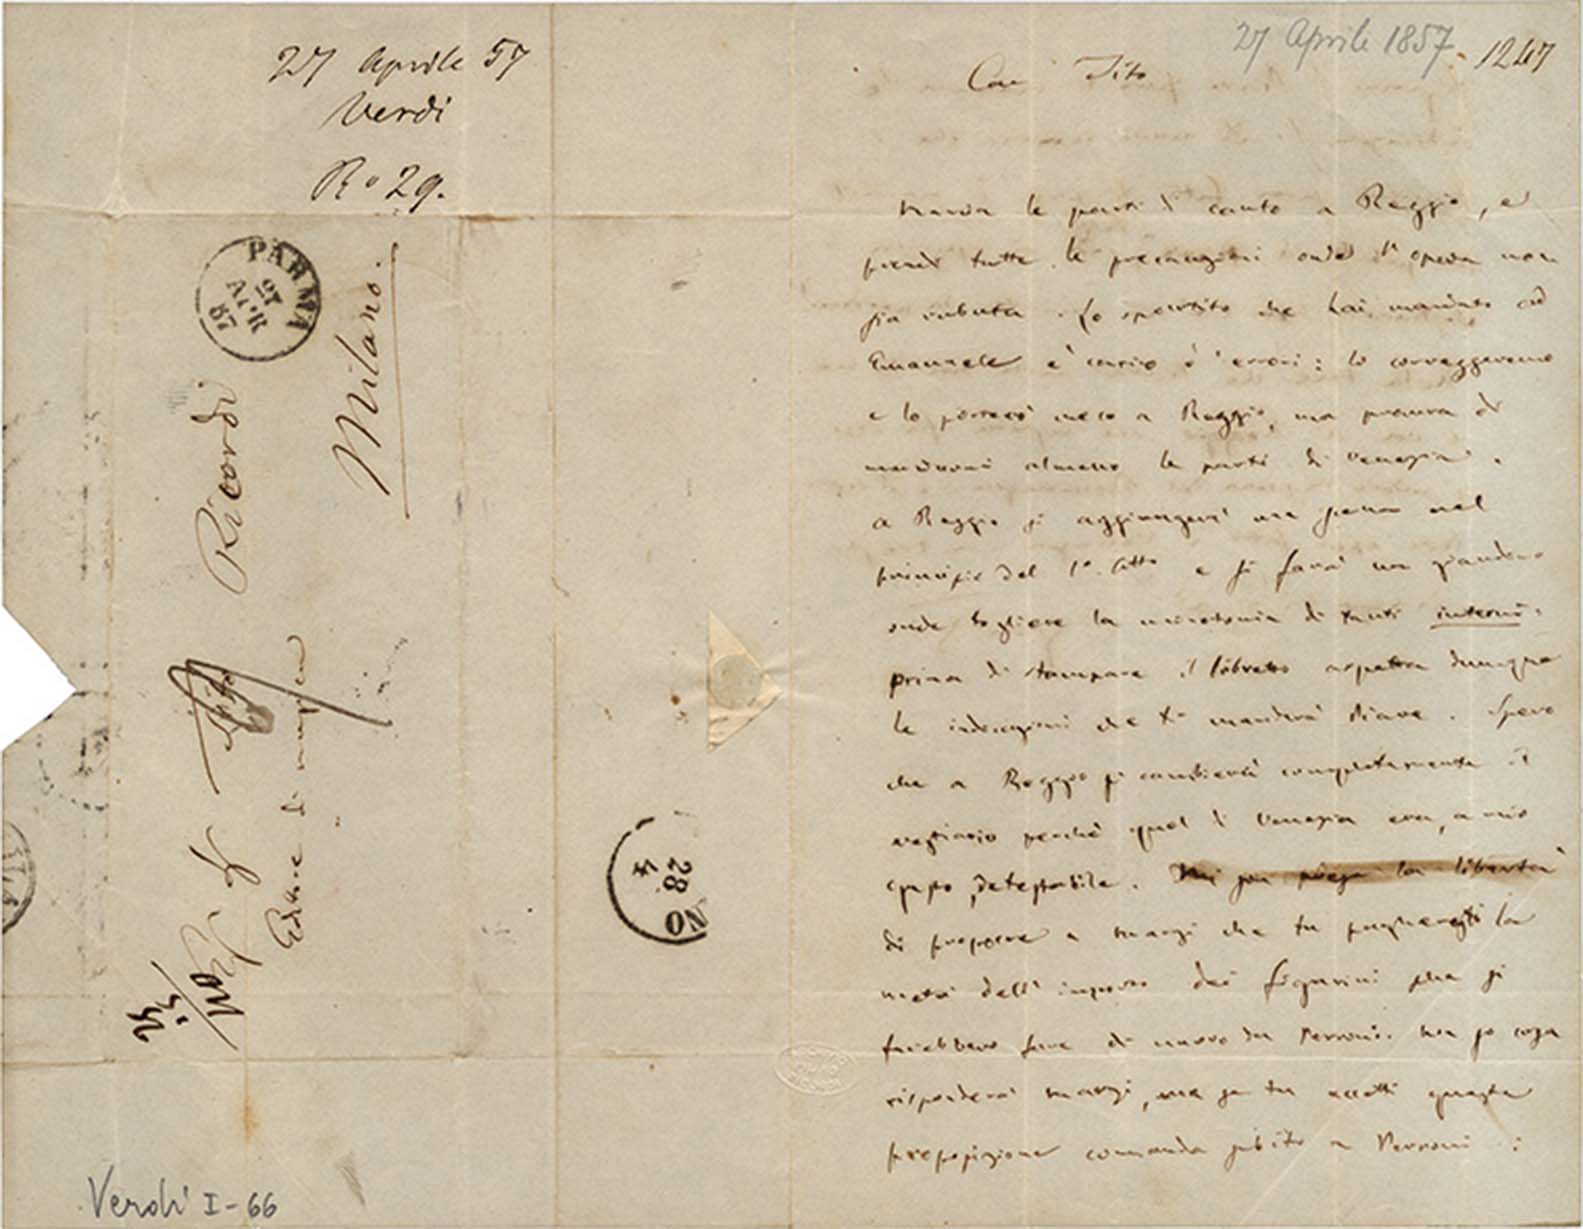 27 Aprile 57
Verdi
R° 29.
PARMA
27
APR
57
Milano.
Ricordi
Tito
Editore di musica
28
4
NO
Verdi I-66
27 Aprile 1857
1247
Car Tito
Manda le parti di canto a Reggio, e
prendi tutte le precauzioni onde l'opera non
sia rubata. Lo spartito che hai mandato ad
Emanuele è carico d'errori: lo correggeremo
e lo porterò meco a Reggio, ma procura di
mandarmi almeno le parti di Venezia.
A Reggio si aggiungerà una scena nel
principio del 1°. Atto e si farà un giardino
onde togliere la monotonia di tanti interni:
prima di stampare il libretto aspetta dunque
le indicazioni che ti manderà Piave. Spero
che a Reggio si cambierà completamente il
vestiario perchè quel di Venezia era, a mio
gusto, detestabile. Mi son presa la libertà
di proporre a Marzi che tu pagheresti la
metà dell'importo dei figurini che si
farebbero fare di nuovo da Perroni. Non so cosa
risponderà Marzi, ma se tu accetti questa
proposizione comanda subito a Perroni: